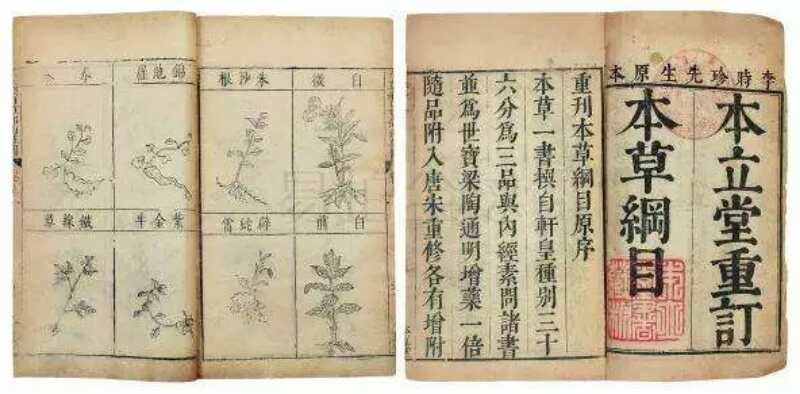 李時珍先生原本
本立堂重訂
本草綱目
重刊本草綱目原序
本草一書撰自軒皇種別三十
六分爲三品與內經素問諸書
並爲世寶梁陶通明增藥一倍
隨品附入唐宋重修各有增附
白微
朱沙根
錦地羅
白前
辟蛇雷
紫金牛
鐵線草